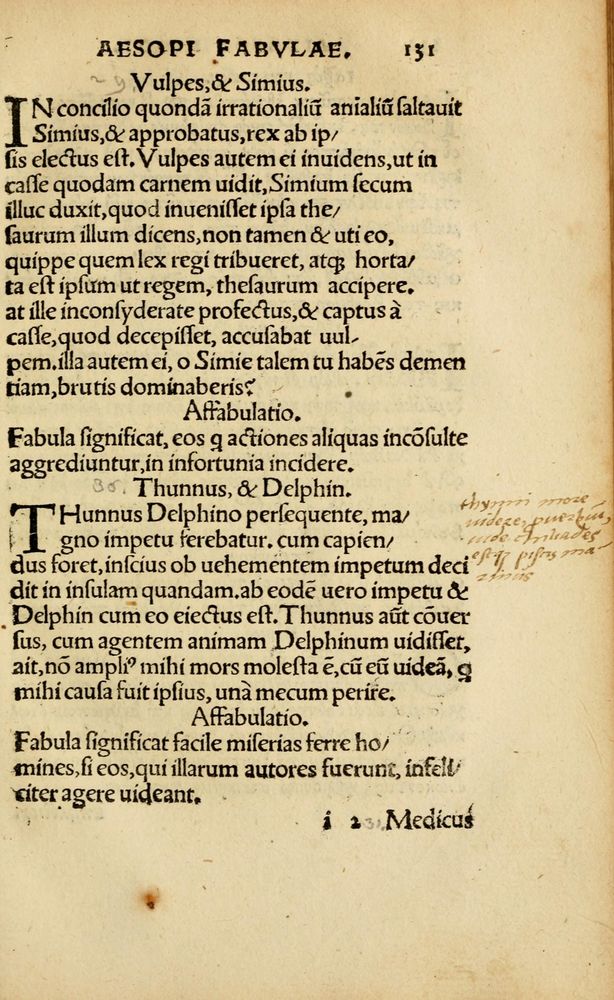 AESOPI FABVLAE. 131
Vulpes, & Simius.
IN concilio quondā irrationaliū anialiū saltauit
Simius, & approbatus, rex ab ip/
sis electus est. Vulpes autem ei inuidens, ut in
casse quodam carnem uidit, Simium secum
illuc duxit, quod inuenisset ipsa the/
saurum illum dicens, non tamen & uti eo,
quippe quem lex regi tribueret, atq; horta/
ta est ipsum ut regem, thesaurum accipere.
at ille inconsyderate profectus, & captus à
casse, quod decepisset, accusabat uul-
pem. illa autem ei, o Simie talem tu habēs demen
tiam, brutis dominaberis?
Affabulatio.
Fabula significat, eos q actiones aliquas incōsulte
aggrediuntur, in infortunia incidere.
Thunnus, & Delphin.
THunnus Delphino persequente, ma/
gno impetu ferebatur. cum capien/
dus foret, inscius ob uehementem impetum deci
dit in insulam quandam. ab eodē uero impetu &
Delphin cum eo eiectus est. Thunnus aūt cōuer
sus, cum agentem animam Delphinum uidisset,
ait, nō ampliꝰ mihi mors molesta ē, cū eū uideā, q
mihi causa fuit ipsius, unà mecum perire.
Affabulatio.
Fabula significat facile miserias ferre ho/
mines, si eos, qui illarum autores fuerunt, infeli/
citer agere uideant.
i 2 Medicus
thynni more